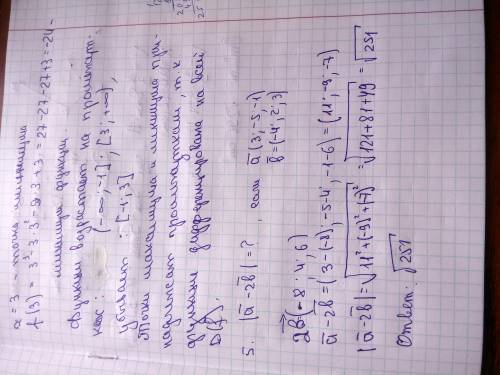 x = 3 - точка минимума
f(3) = 3³ - 3·3² - 9·3 + 3 = 27 - 27 - 27 + 3 = -24 -
минимум функции.
Функция возрастает на промежут-
ках: (-∞; -1]; [3; +∞),
убывает: [-1; 3]
Точки максимума и минимума при-
надлежат промежуткам, т.к
функция дифференцирована на всей
D(f).
5. |a̅ - 2b̅| = ? , если a̅ (3; -5; -1)
b̅ = (-4; 2; 3)
2b̅ (-8; 4; 6)
a̅ - 2b̅ = (3 - (-8); -5-4; -1-6) = (11; -9; -7)
|a̅ - 2b̅| = √11² + (-9)² + (-7)² = √121 + 81 + 49 = √251
Ответ: √251